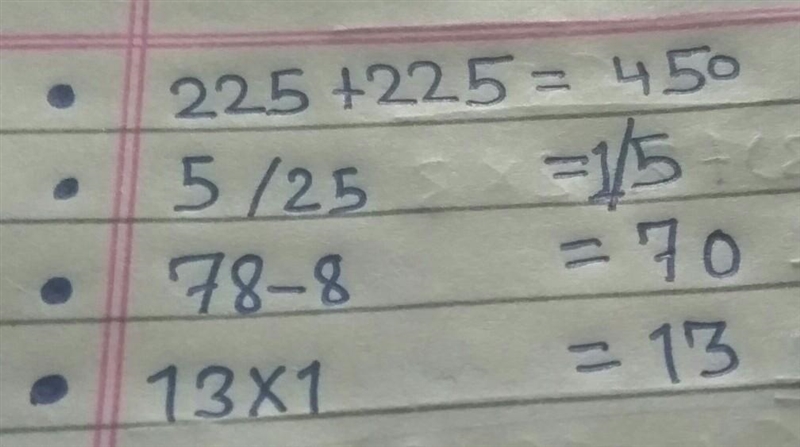 • 225+225 = 450
• 5/25 = 1/5
• 78-8 = 70
• 13x1 = 13